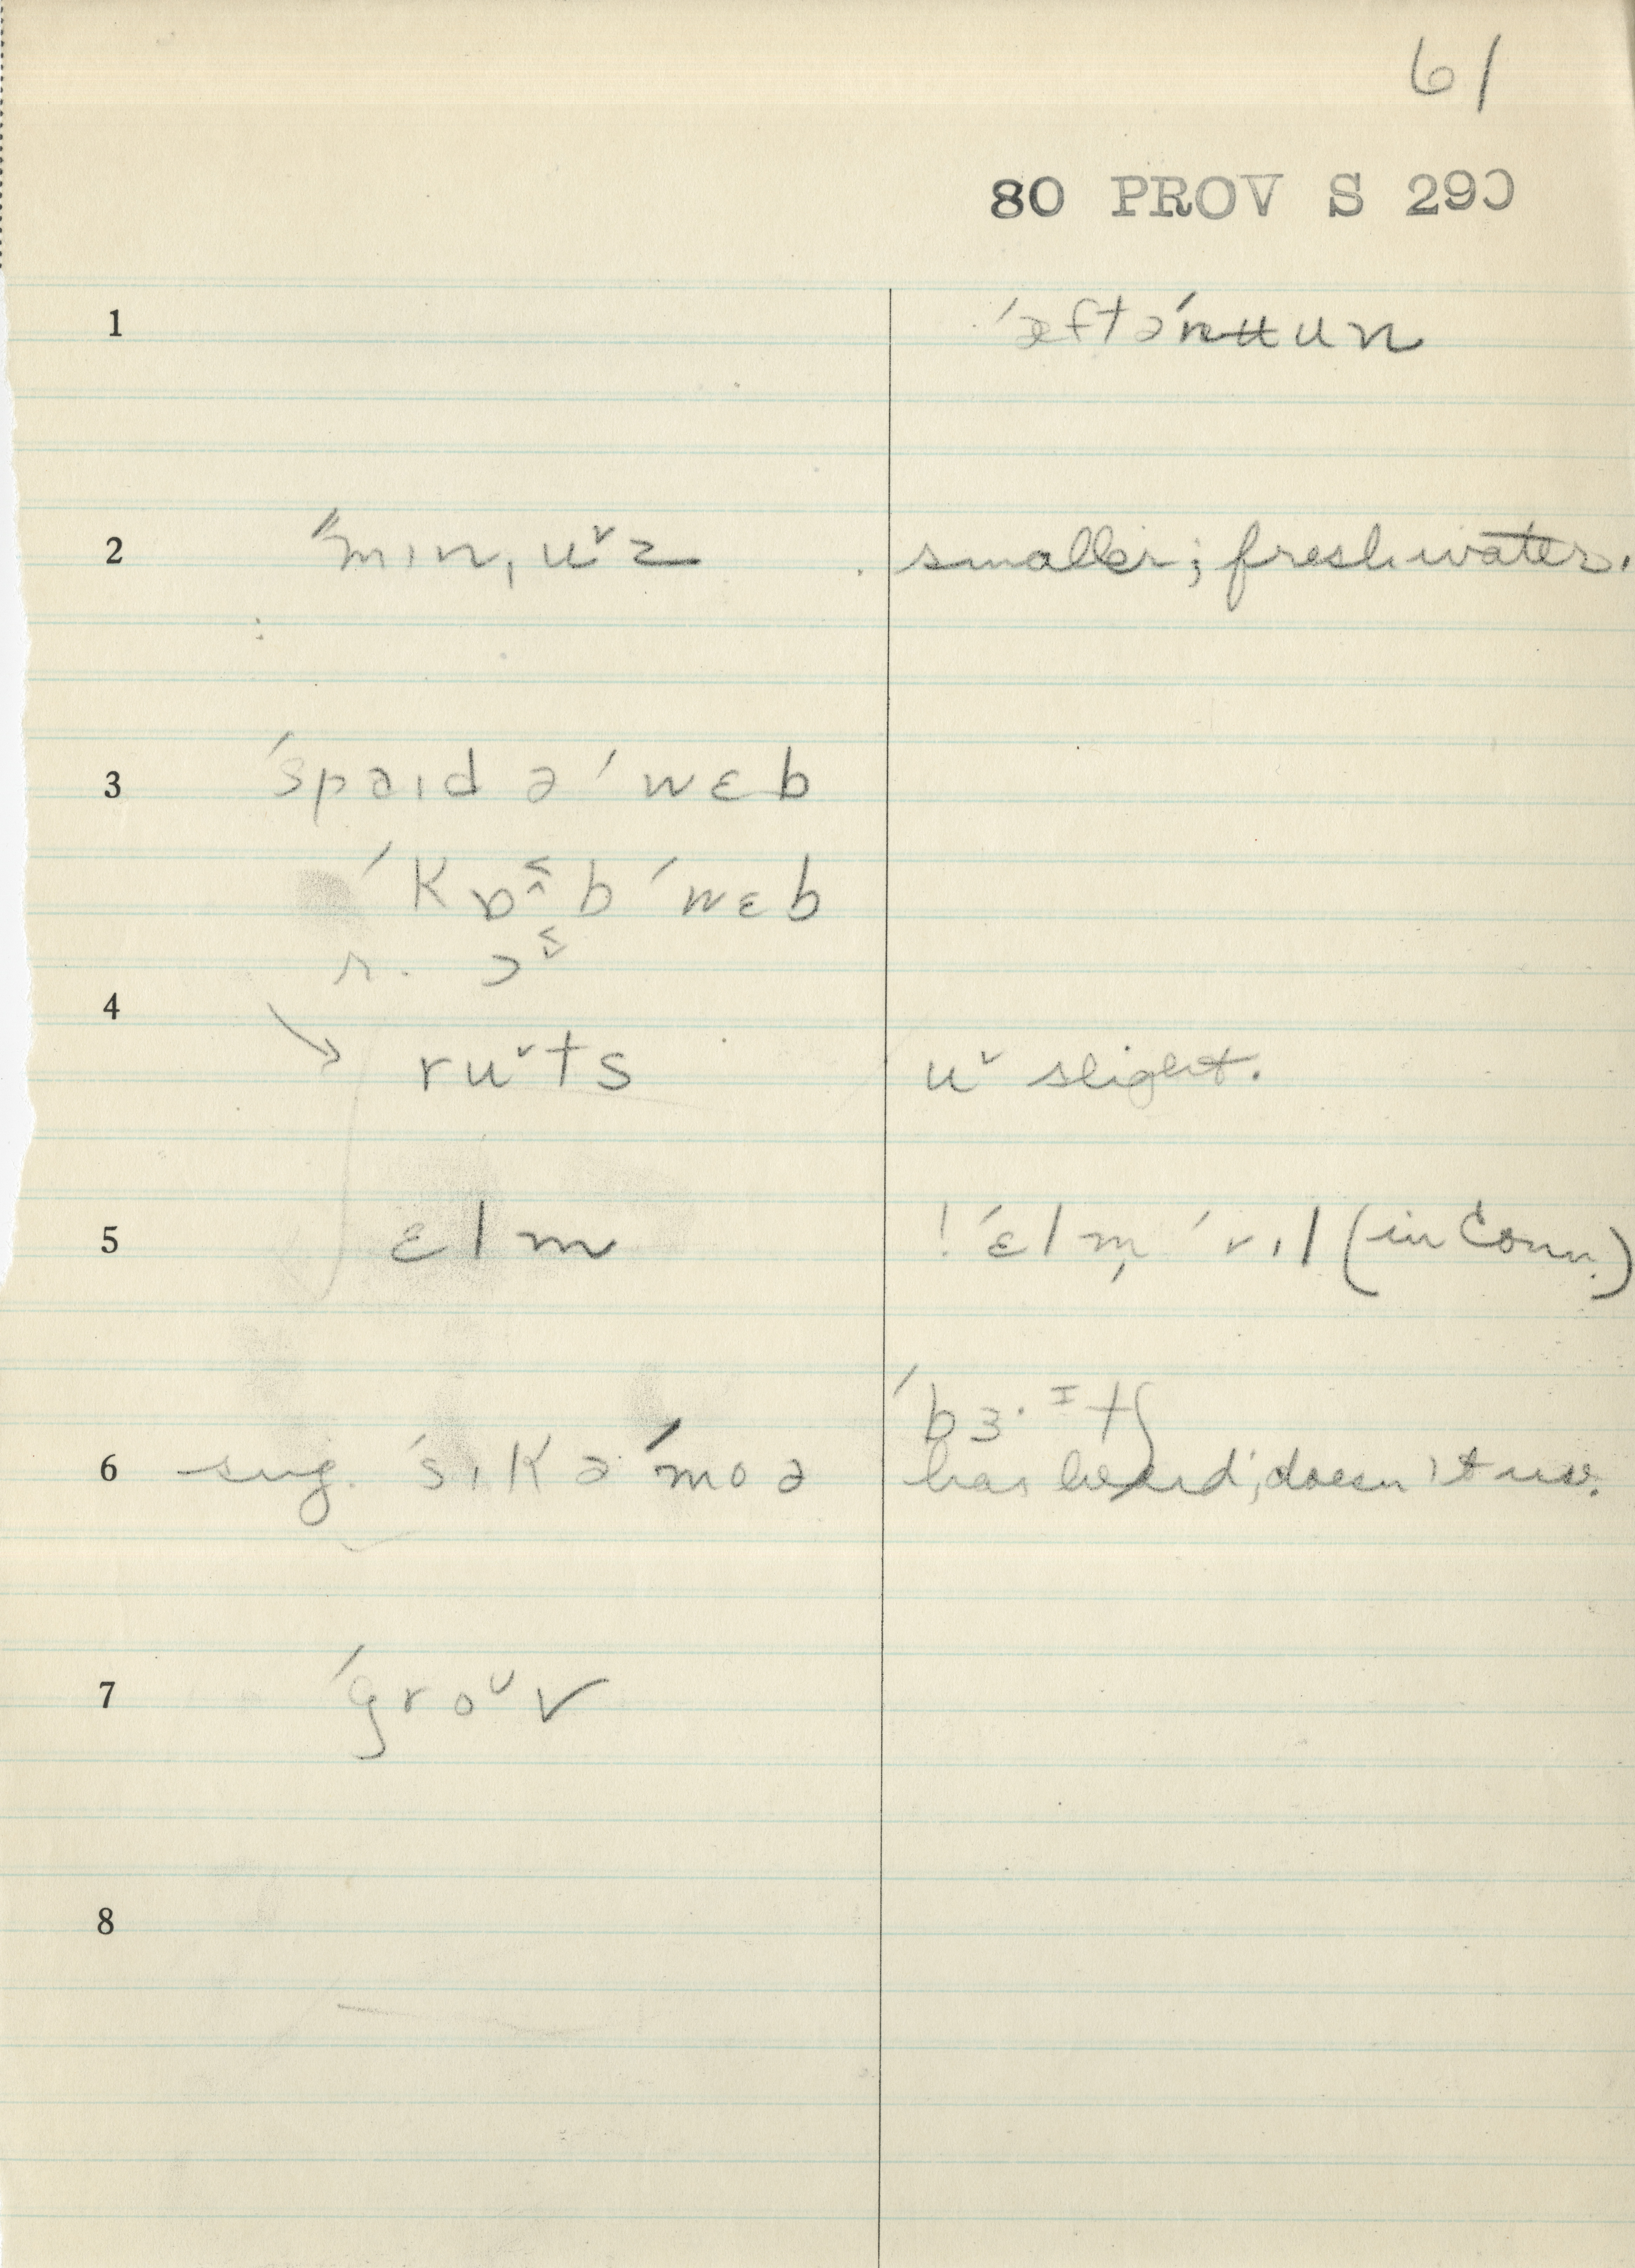 61
80 PROV S 290
1 ˈæftəˈnuun
2 ˈˈmɪnˌuˇz smaller; freshwater.
3 ˈspaɪdəˈwɛb
ˈkɒ˂̭bˈwɛb
r. ɔ˂̬
4
→ ruˇts uˇ slight.
5 ɛlm ! ˈɛlm̩ ˈɪl (in Conn.)
ˈbɜ·ᶦtʃ
6 sug. ˈsɪkəˈmoə has heard; doesn't use.
7 ˈgroᵘv
8